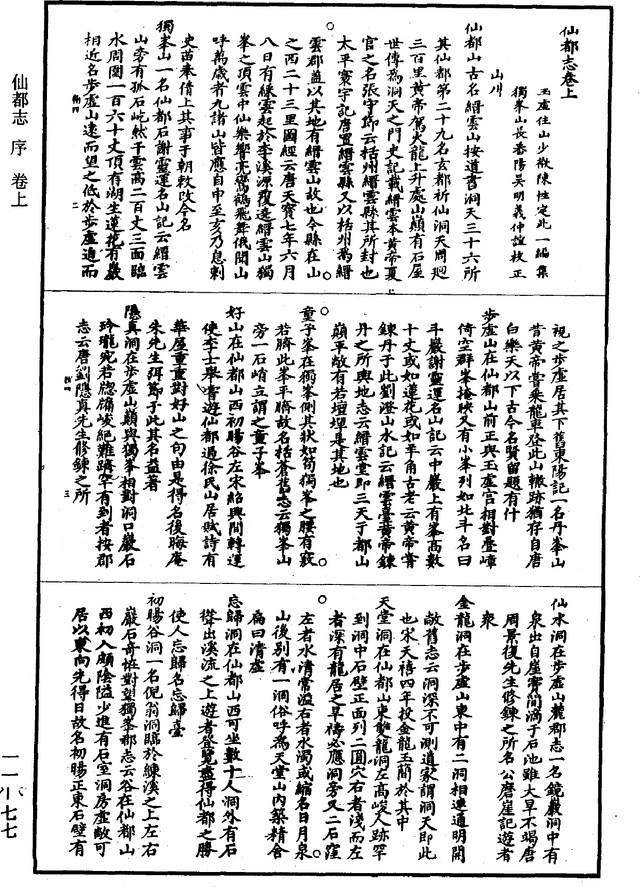 仙都志 序 卷上
仙都志卷上
玉虛住山少微陳性定此一編集
獨峯山長番陽吳明義仲誼校正
山川
仙都山古名縉雲山按道書洞天三十六所
其仙都第二十九名玄都祈仙洞天周迴
三百里黃帝駕火龍上升處山巔有石屋
世傳為洞天之門史記載縉雲本黃帝夏
官之名張守節云栝州縉雲縣其所封也
太平寰宇記唐置縉雲縣又以栝州為縉
雲郡蓋以其地有縉雲山故也今縣在山
之西二十三里圖經云唐天寶七年六月
八日有綵雲起於李溪源覆遶縉雲山獨
峯之頂雲中仙樂響亮鸞鶴飛舞俄聞山
呼萬歲者九諸山皆應自申至亥乃息刺
史苗奉倩上其事于朝敕改今名
獨峯山一名仙都石謝靈運名山記云縉雲
山旁有孤石屹然干雲高二百丈三面臨
水周圍一百六十丈頂有湖生蓮花有巖
相近名步虛山遠而望之低於步虛迫而
視之步虛居其下舊東陽記一名丹峯山
昔黃帝嘗乘龍車登此山轍跡猶存自唐
白樂天以下古今名賢留題有什
步虛山在仙都山前正與玉虛宮相對疊嶂
倚空群峯掩映又有小峯列如北斗名曰
斗巖謝靈運名山記云中巖上有峯高數
十丈或如蓮花或如羊角古老云黃帝嘗
鍊丹于此劉澄山水記云縉雲臺黃帝鍊
丹之所輿地志云縉雲堂即三天子都山
巔平敞有若壇墠是其地也
童子峯在獨峯側其狀如筍獨峯之腰有竅
若臍此峯平臍故名栝蒼舊志云獨峯山
旁一石峭立謂之童子峯
好山在仙都山西初暘谷左宋紹興間轉運
使李士舉嘗遊仙都過徐氏山居賦詩有
華屋重重對好山之句由是得名後晦庵
朱先生弭節于此其名益著
隱真洞在步虛山巔與獨峯相對洞口巖石
玲瓏宛若牕牖峻絕難躋罕有到者按郡
志云唐劉隱真先生修鍊之所
仙水洞在步虛山麓郡志一名鏡巖洞中有
泉出自崖竇間滴于石池雖大旱不竭唐
周景復先生修鍊之所名公磨崖記遊者
衆
金龍洞在步虛山東中有二洞相連通明開
敞舊志云洞深不可測道家謂洞天即此
也宋天禧四年投金龍玉簡於其中
天堂洞在仙都山東金龍洞左高峻人跡罕
到洞中石壁正面列二圓穴右者淺而左
者深有龍居之旱禱必應洞旁又二石窪
左者水清常溢右者水濁或縮名日月泉
山後別有一洞俗呼為天堂山內築精舍
扁曰清虛
忘歸洞在仙都山西可坐數十人洞外有石
磴出溪流之上遊者登覽盡得仙都之勝
使人忘歸名忘歸臺
初暘谷洞一名倪翁洞臨於練溪之上左右
巖石奇恠對望獨峯郡志云谷在仙都山
西初入頗陰隘少進有石室洞房虛敞可
居以東向先得日故名初暘正東石壁有